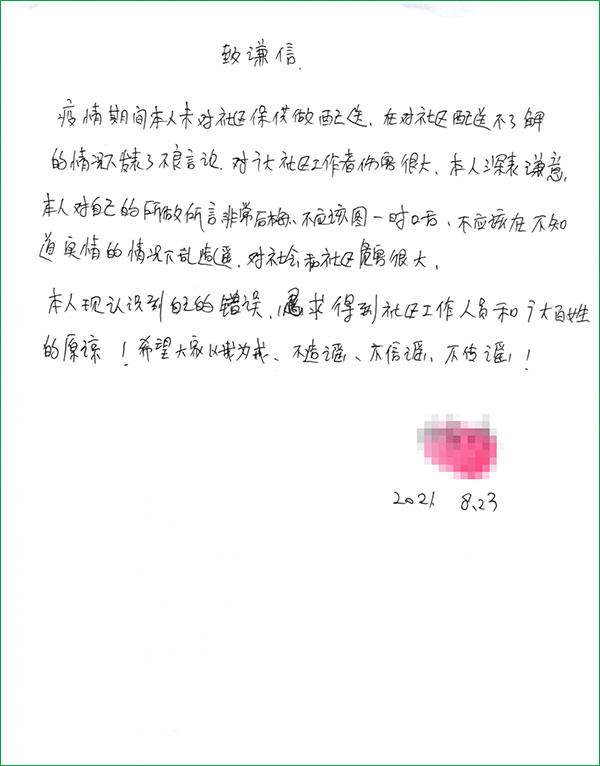 致谦信.
疫情期间本人未对社区保供做配送、在对社区配送不了解
的情况下发表了不良言论、对广大社区工作者伤害很大、本人深表谦意,
本人对自己的所做所言非常后悔、不应该图一时口舌、不应该在不知
道实情的情况下乱造谣、对社会和社区危害很大、
本人现认识到自己的错误、恳求得到社区工作人员和广大百姓
的原谅！希望大家以我为戒、不造谣、不信谣、不传谣！
2021 8.23